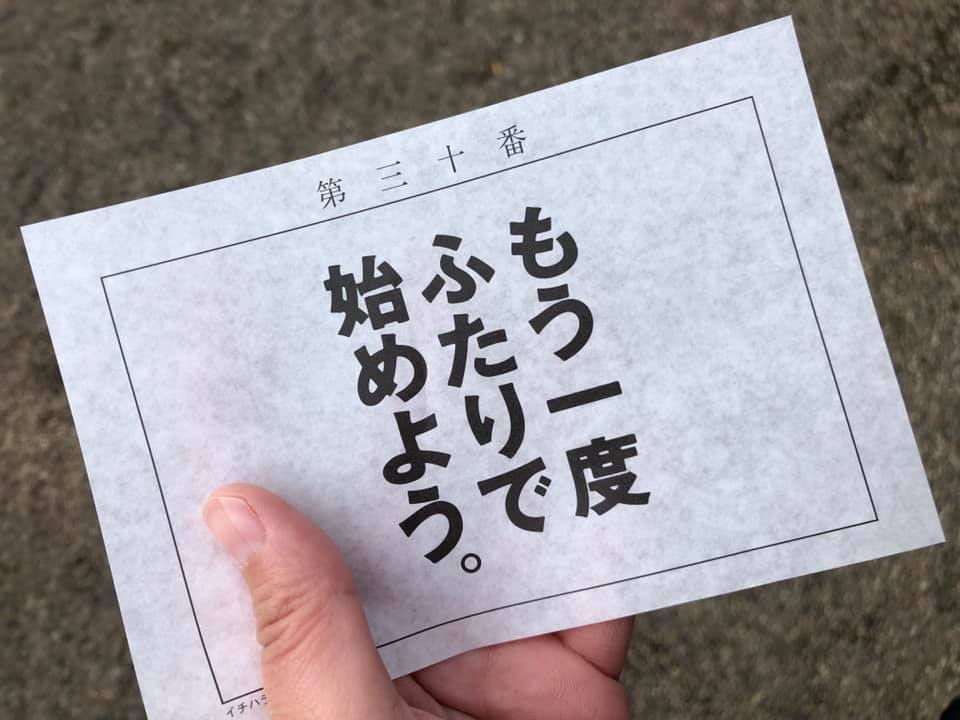 第三十番
もう一度
ふたりで
始めよう。
イチハラ